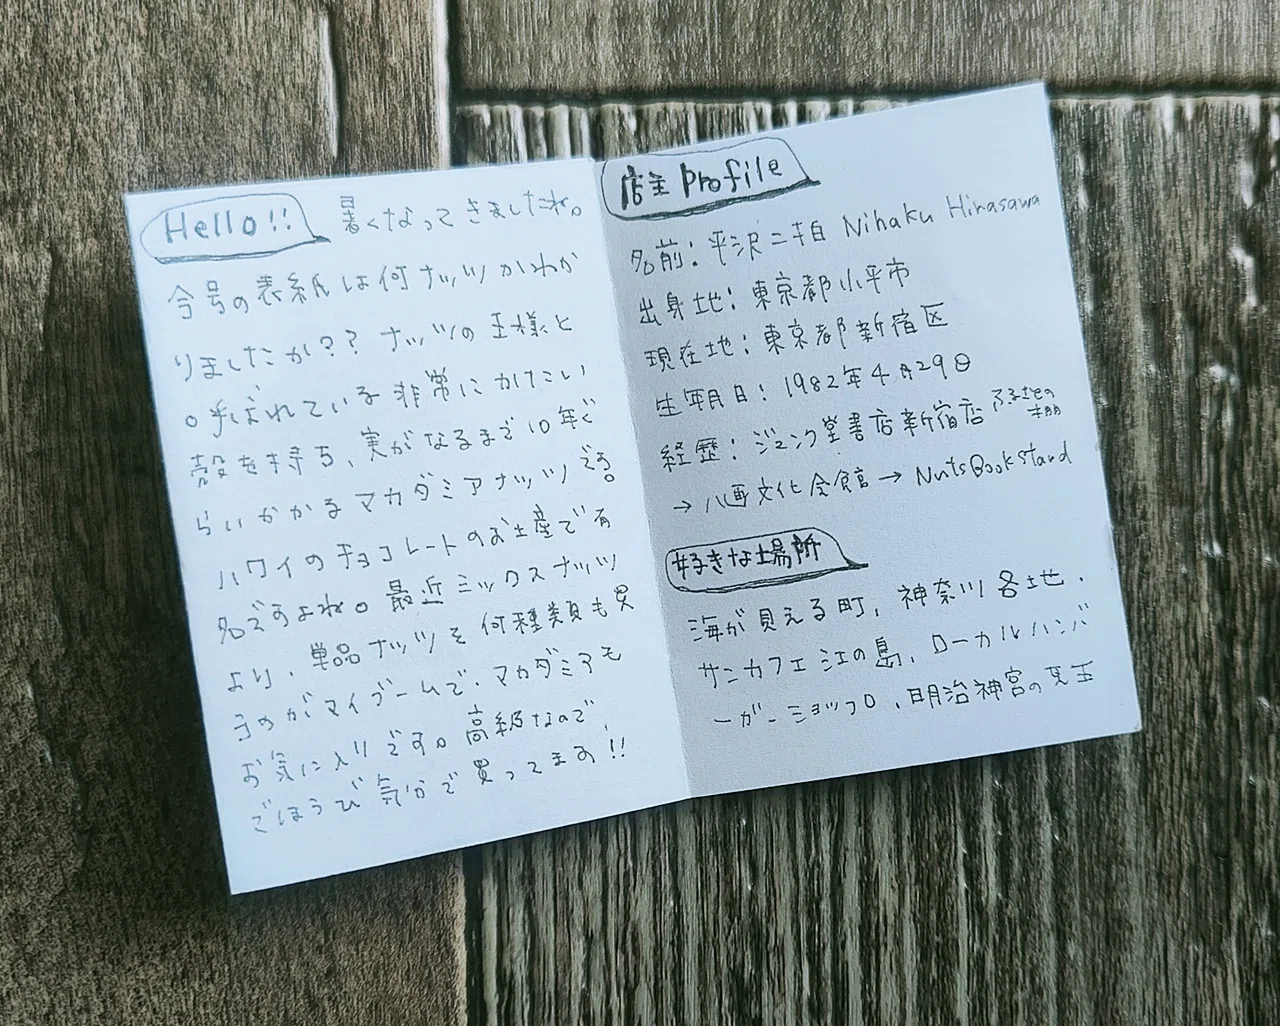 Hello!! 暑くなってきましたね。
今号の表紙は何ナッツかわか
りましたか?? ナッツの王様と
も呼ばれている非常にかたい
殻を持ち、実がなるまで10年ぐ
らいかかるマカダミアナッツです。
ハワイのチョコレートのお土産で有
名ですよね。最近ミックスナッツ
より、単品ナッツを何種類も買
うのがマイブームで、マカダミアも
お気に入りです。高級なので、
ごほうび気分で買ってます!!
店主 profile
名前:平沢二拍 Nihaku Hirasawa
出身地:東京都小平市
現在地:東京都新宿区
生年月日:1982年4月29日
経歴:ジュンク堂書店新宿店 ふるさとの棚
→ 八画文化会館 → Nuts Book Stand
好きな場所
海が見える町、神奈川各地、
サンカフェ江の島、ローカルハンバ
ーガーショップ、明治神宮の